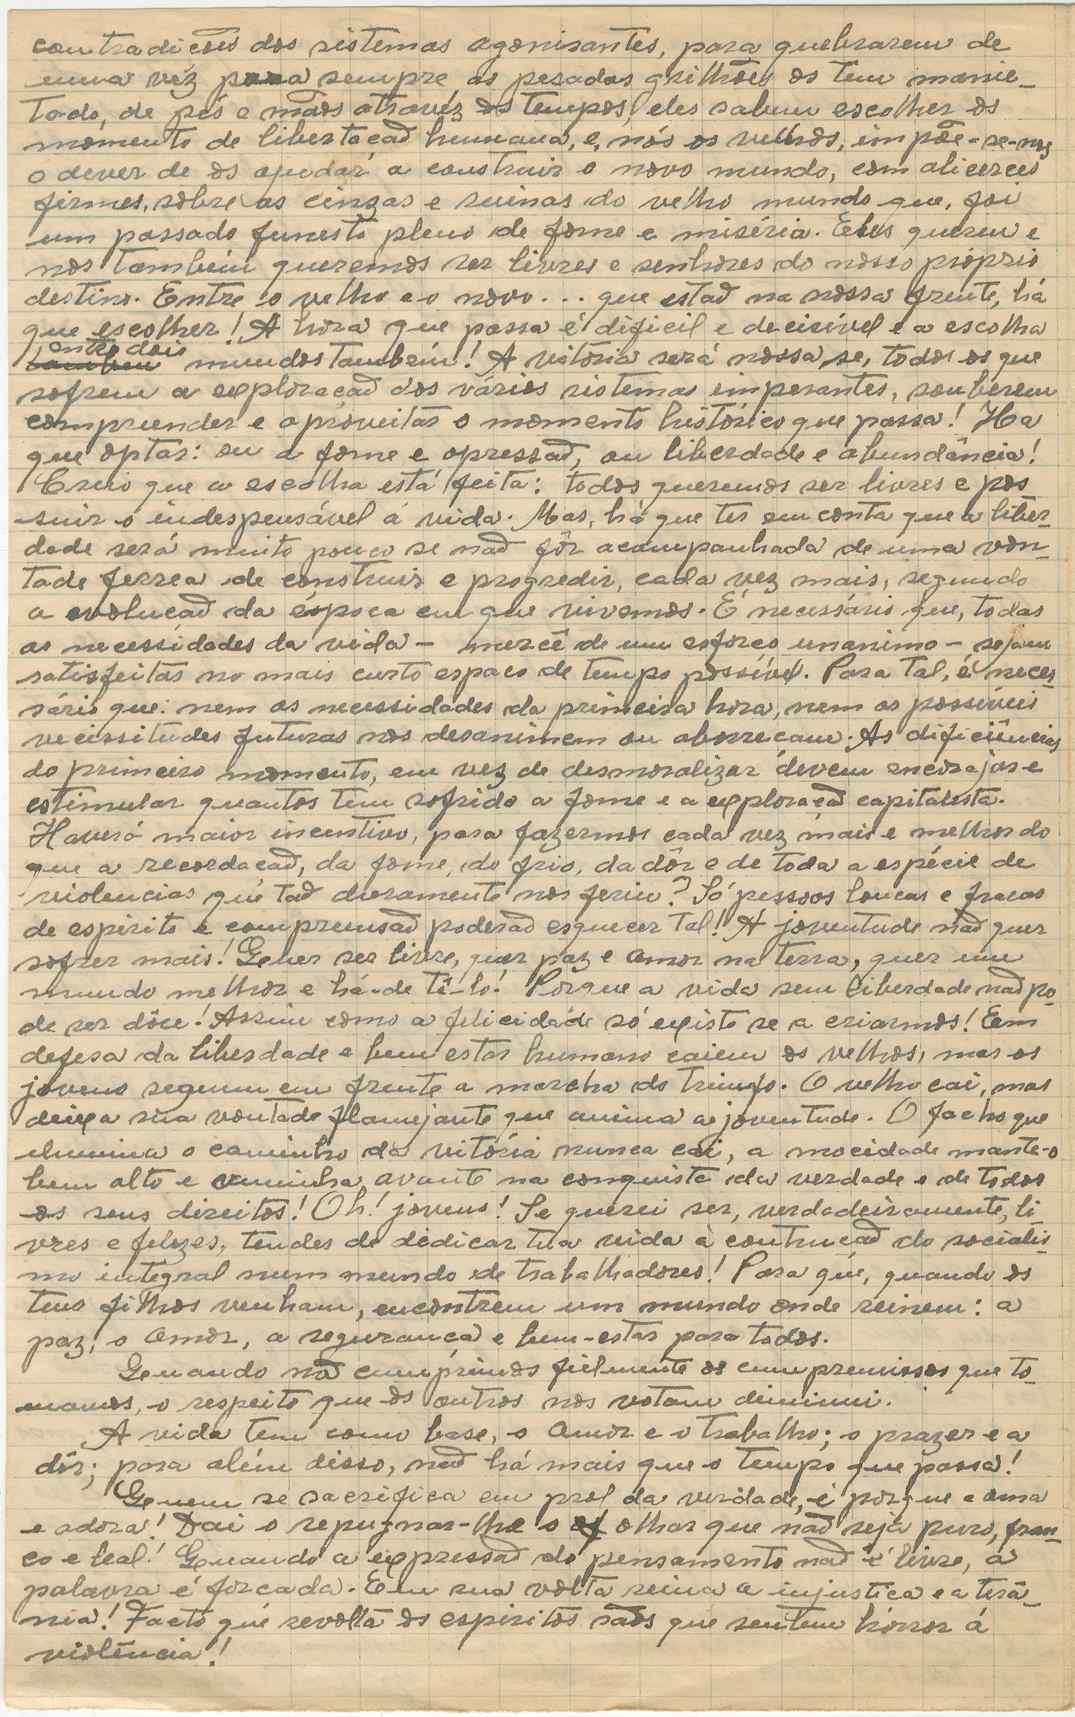 contradicões dos sistemas agonisantes, para quebrarem de
uma vêz para sempre as pesadas grilhões os tem manie-
tado, de pés e mãos atravéz os tempos, eles sabem escolher os
momento de libertacaõ humana, e, nós os velhos, impõe-se-nos
o dever de os ajudar a construir o novo mundo, com alicerces
firmes, sobre as cinzas e ruinas do velho mundo que, foi
um passado funesto pleno de fome e miséria. Eles querem e
nos tambèm queremos ser livres e senhores do nosso próprio
destino. Entre o velho e o novo... que estaõ na nossa frente, há
que escolher! A hora que passa é dificil e decisível e a escolha
entre dois
tambem mundos tambèm! A vitória será nossa se, todos os que
sofrem a exploracaõ dos vários sistemas imperantes, souberem
compreender e aproveitar o momento histórico que passa! Ha
que optar: ou a fome e opressaõ, ou liberdade e abundância!
Creio que a escolha está feita: todos queremos ser livres e pos
suir o indespensável á vida. Mas, há que ter em conta que a liber-
dade será muito pouco se naõ fôr acompanhada de uma von-
tade ferrea de construir e progredir, cada vez mais, segundo
a evolucaõ da época em que vivemos. É necessário que, todas
as necessidades da vida - mercê de um esforco unanimo - sejam
satisfeitas no mais curto espaco de tempo possível. Para tal, é neces-
sário que: nem as necessidades da primeira hora, nem as possiveis
vecissitudes futuras nos desanimem ou aborrecam. As dificiências
do primeiro momento, em vez de desmoralizar devem encorajar e
estimular quantos tem sofrido a fome e a exploracaõ capitalista.
Haverá maior incentivo, para fazermos cada vez mais e melhor do
que a recordacaõ, da fome, do frio, da dôr e de toda a espécie de
violencias que taõ duramente nos feriu? Só pessoas loucas e fracas
de espirito e compreensaõ poderaõ esquecer tal! A joventude naõ quer
sofrer mais! Quer ser livre, quer paz e amor na terra, quer um
mundo melhor e há-de tê-ló! Porque a vida sem liberdade naõ po-
de ser dôce! Assim como a felicidade só existe se a criarmos! Em
defesa da liberdade e bem estar humano caiem os velhos, mas os
jovens seguem em frente a marcha do triunfo. O velho cai, mas
deixa sua vontade flamejante que anima a joventude. O facho que
ilumina o caminho da vitória nunca cai, a mocidade mante-o
bem alto e caminha, avante na conquista da verdade e de todos
os seus direitos! Oh! jovens! Se querei ser, verdadeiramente, li
vres e felizes, tendes de dedicar tua vida à contrucaõ do socialis-
mo integral num mundo de trabalhadores! Para que, quando os
teus filhos venham, encontrem um mundo onde reinem: a
paz, o amor, a seguranca e bem-estar para todos.
Quando naõ cumprimos fielmente os cumpremissos que to-
mamos, o respeito que os outros nos votam diminui.
A vida tem como base, o amor e o trabalho; o prazer e a
dôr; para além disso, naõ há mais que o tempo que passa!
Quem se sacrifica em prol da verdade, é porque a ama
e adora! Dai o repugnar-lhe o olhar que naõ seja puro, fran-
co e leal! Quando a expressaõ do pensamento naõ é livre, a
palavra é forcada. Em sua volta reina a injustica e a tirâ-
nia! Facto que revolta os espiritos saõs que sentem hórror á
violência!